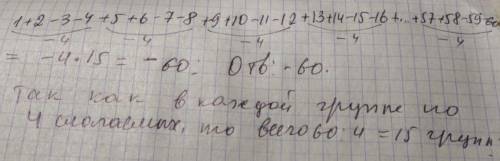 1+2-3-4+5+6-7-8+9+10-11-12+13+14-15-16+...+57+58-59-60
-4 -4 -4 -4 -4
= -4·15 = -60. Отв: -60.
Так как в каждой группе по
4 слагаемых, то всего 60:4=15 групп